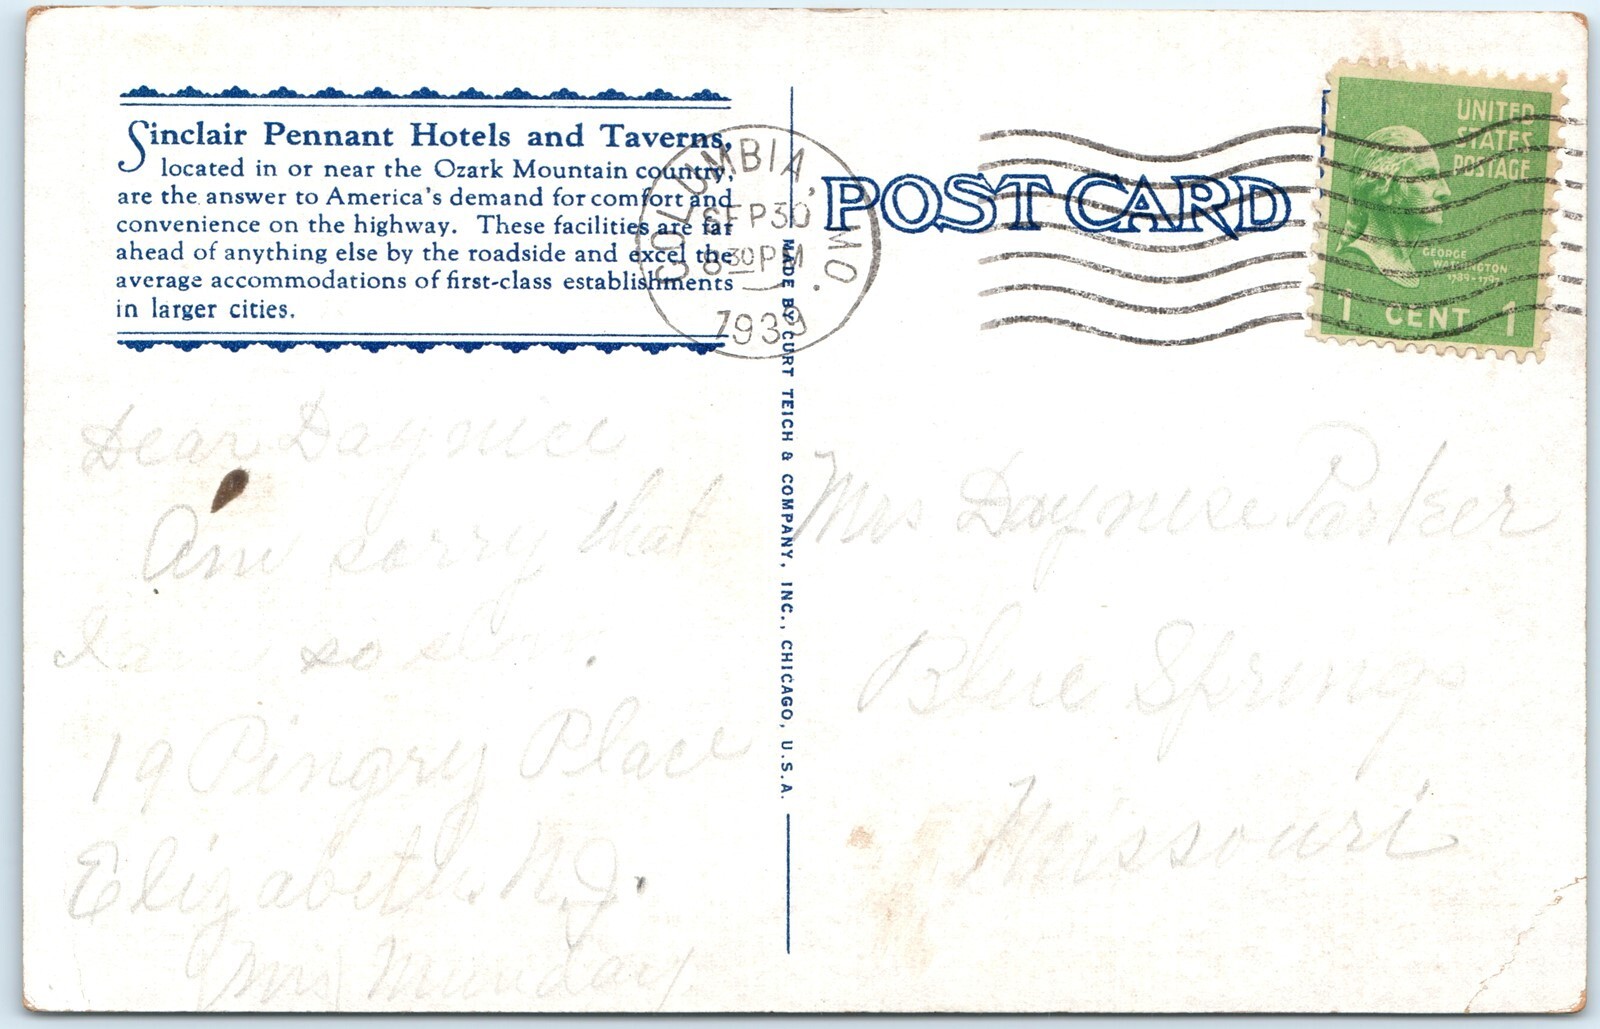 Sinclair Pennant Hotels and Taverns,
located in or near the Ozark Mountain country,
are the answer to America's demand for comfort and
convenience on the highway. These facilities are far
ahead of anything else by the roadside and excel the
average accommodations of first-class establishments
in larger cities.
COLUMBIA, MO.
SEP 30
8 30 PM
1939
POST CARD
UNITED
STATES
POSTAGE
GEORGE
WASHINGTON
1789-1797
1 CENT 1
MADE BY CURT TEICH & COMPANY, INC., CHICAGO, U.S.A.
Dear Daynice
Am sorry that
I am so slow.
19 Pingry Place
Elizabeth. N.J.
Mrs Munday.
Mrs Daynise Parker
Blue Springs
Missouri